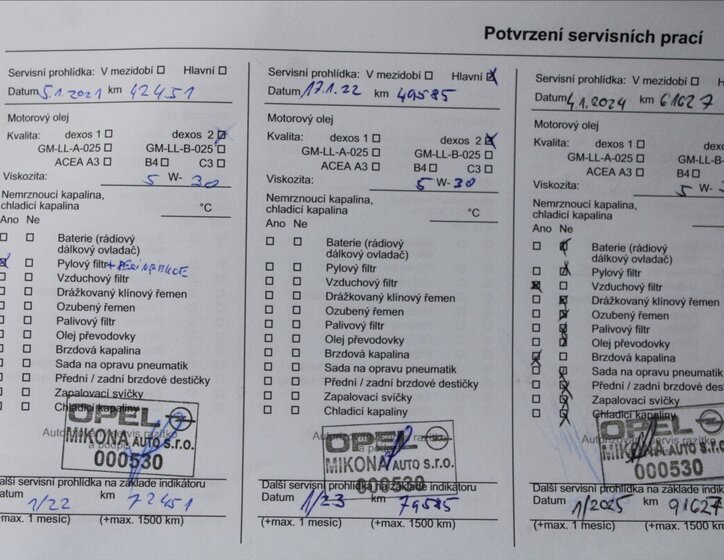 Potvrzení servisních prací
Servisní prohlídka: V mezidobí ☐ Hlavní ☐
Datum 5.1.2021 km 42451
Motorový olej
Kvalita: dexos 1 ☐ dexos 2 ☒
GM-LL-A-025 ☐ GM-LL-B-025 ☐
ACEA A3 ☐ B4 ☐ C3 ☐
Viskozita: 5 W- 30
Nemrznoucí kapalina,
chladicí kapalina °C
Ano Ne
☐ ☐ Baterie (rádiový
dálkový ovladač)
☒ ☐ Pylový filtr
☐ ☐ Vzduchový filtr
☐ ☐ Drážkovaný klínový řemen
☐ ☐ Ozubený řemen
☐ ☐ Palivový filtr
☐ ☐ Olej převodovky
☐ ☐ Brzdová kapalina
☐ ☐ Sada na opravu pneumatik
☐ ☐ Přední / zadní brzdové destičky
☐ ☐ Zapalovací svíčky
☐ ☐ Chladicí kapaliny
OPEL
MIKONA AUTO S.R.O.
000530
Další servisní prohlídka na základě indikátoru
Datum 1/22 km 72451
(+max. 1 měsíc) (+max. 1500 km)
Servisní prohlídka: V mezidobí ☐ Hlavní ☒
Datum 17.1.22 km 49585
Motorový olej
Kvalita: dexos 1 ☐ dexos 2 ☒
GM-LL-A-025 ☐ GM-LL-B-025 ☐
ACEA A3 ☐ B4 ☐ C3 ☐
Viskozita: 5 W- 30
Nemrznoucí kapalina,
chladicí kapalina °C
Ano Ne
☐ ☐ Baterie (rádiový
dálkový ovladač)
☐ ☐ Pylový filtr
☐ ☐ Vzduchový filtr
☐ ☐ Drážkovaný klínový řemen
☐ ☐ Ozubený řemen
☐ ☐ Palivový filtr
☐ ☐ Olej převodovky
☐ ☐ Brzdová kapalina
☐ ☐ Sada na opravu pneumatik
☐ ☐ Přední / zadní brzdové destičky
☐ ☐ Zapalovací svíčky
☐ ☐ Chladicí kapaliny
OPEL
MIKONA AUTO S.R.O.
000530
Další servisní prohlídka na základě indikátoru
Datum 1/23 km 79585
(+max. 1 měsíc) (+max. 1500 km)
Servisní prohlídka: V mezidobí ☐ Hlavní
Datum 4.1.2024 km 61627
Motorový olej
Kvalita: dexos 1 ☐ dexos 2
GM-LL-A-025 ☐ GM-LL-B-025
ACEA A3 ☐ B4 ☐
Viskozita: 5 W-
Nemrznoucí kapalina,
chladicí kapalina
Ano Ne
☐ ☒ Baterie (rádiový
dálkový ovladač)
☐ ☒ Pylový filtr
☒ ☐ Vzduchový filtr
☐ ☒ Drážkovaný klínový řemen
☐ ☒ Ozubený řemen
☐ ☒ Palivový filtr
☐ ☒ Olej převodovky
☒ ☐ Brzdová kapalina
☐ ☒ Sada na opravu pneumatik
☐ ☒ Přední / zadní brzdové destičky
☐ ☒ Zapalovací svíčky
☐ ☒ Chladicí kapaliny
OPEL
MIKONA AUTO S.R.O.
000530
Další servisní prohlídka na základě indiká
Datum 1/2025 km 91627
(+max. 1 měsíc) (+max. 1500 km)